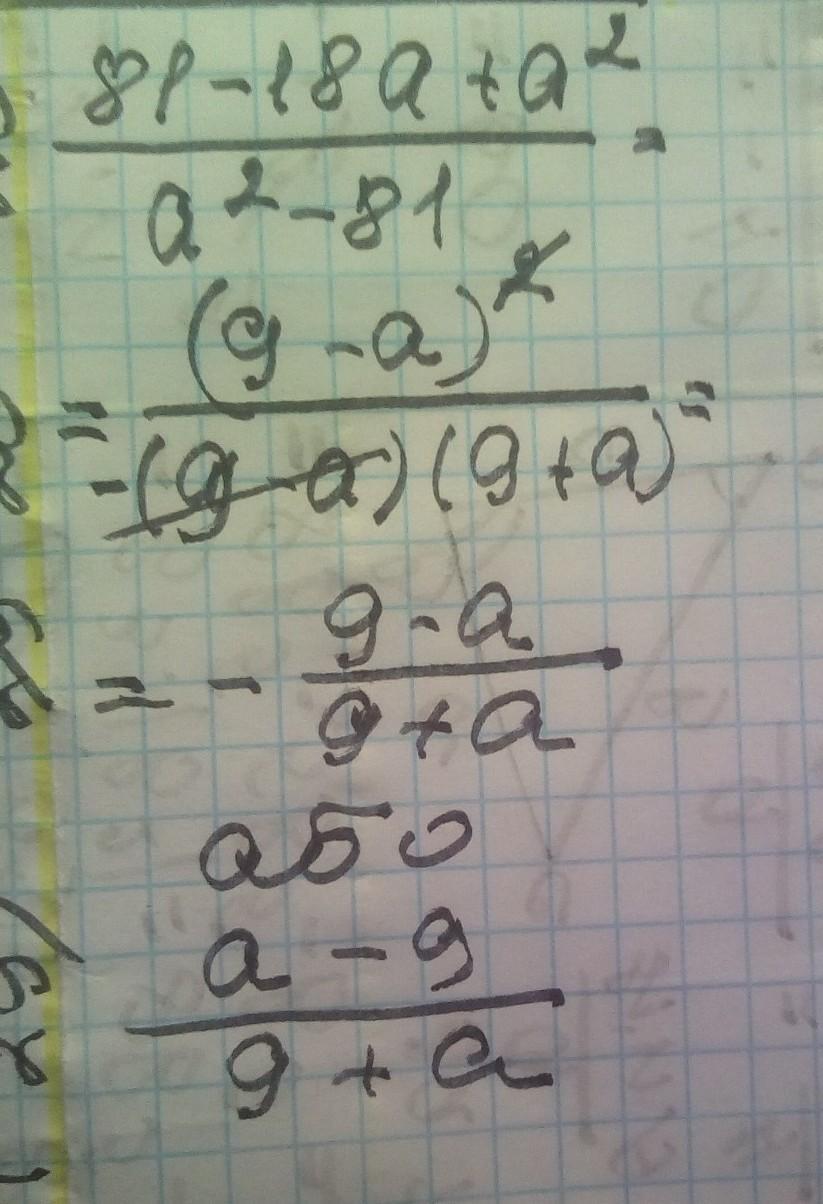 81-18a+a²
a²-81 =
(9-a)²
= -(9-a)(9+a) =
9-a
= - 9+a
або
a-9
9+a